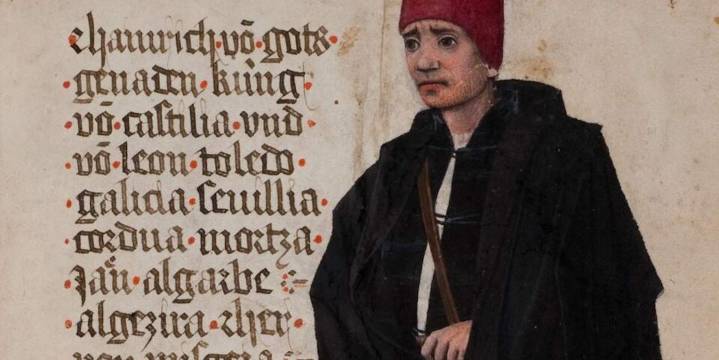 chainrich·võ·gots·
·genaden·küng·
·võ·castilia·vnd·
·võ·leon·toledo·
·galicia·seuillia·
·cordua·mortza·
·algarbe
·algezira·